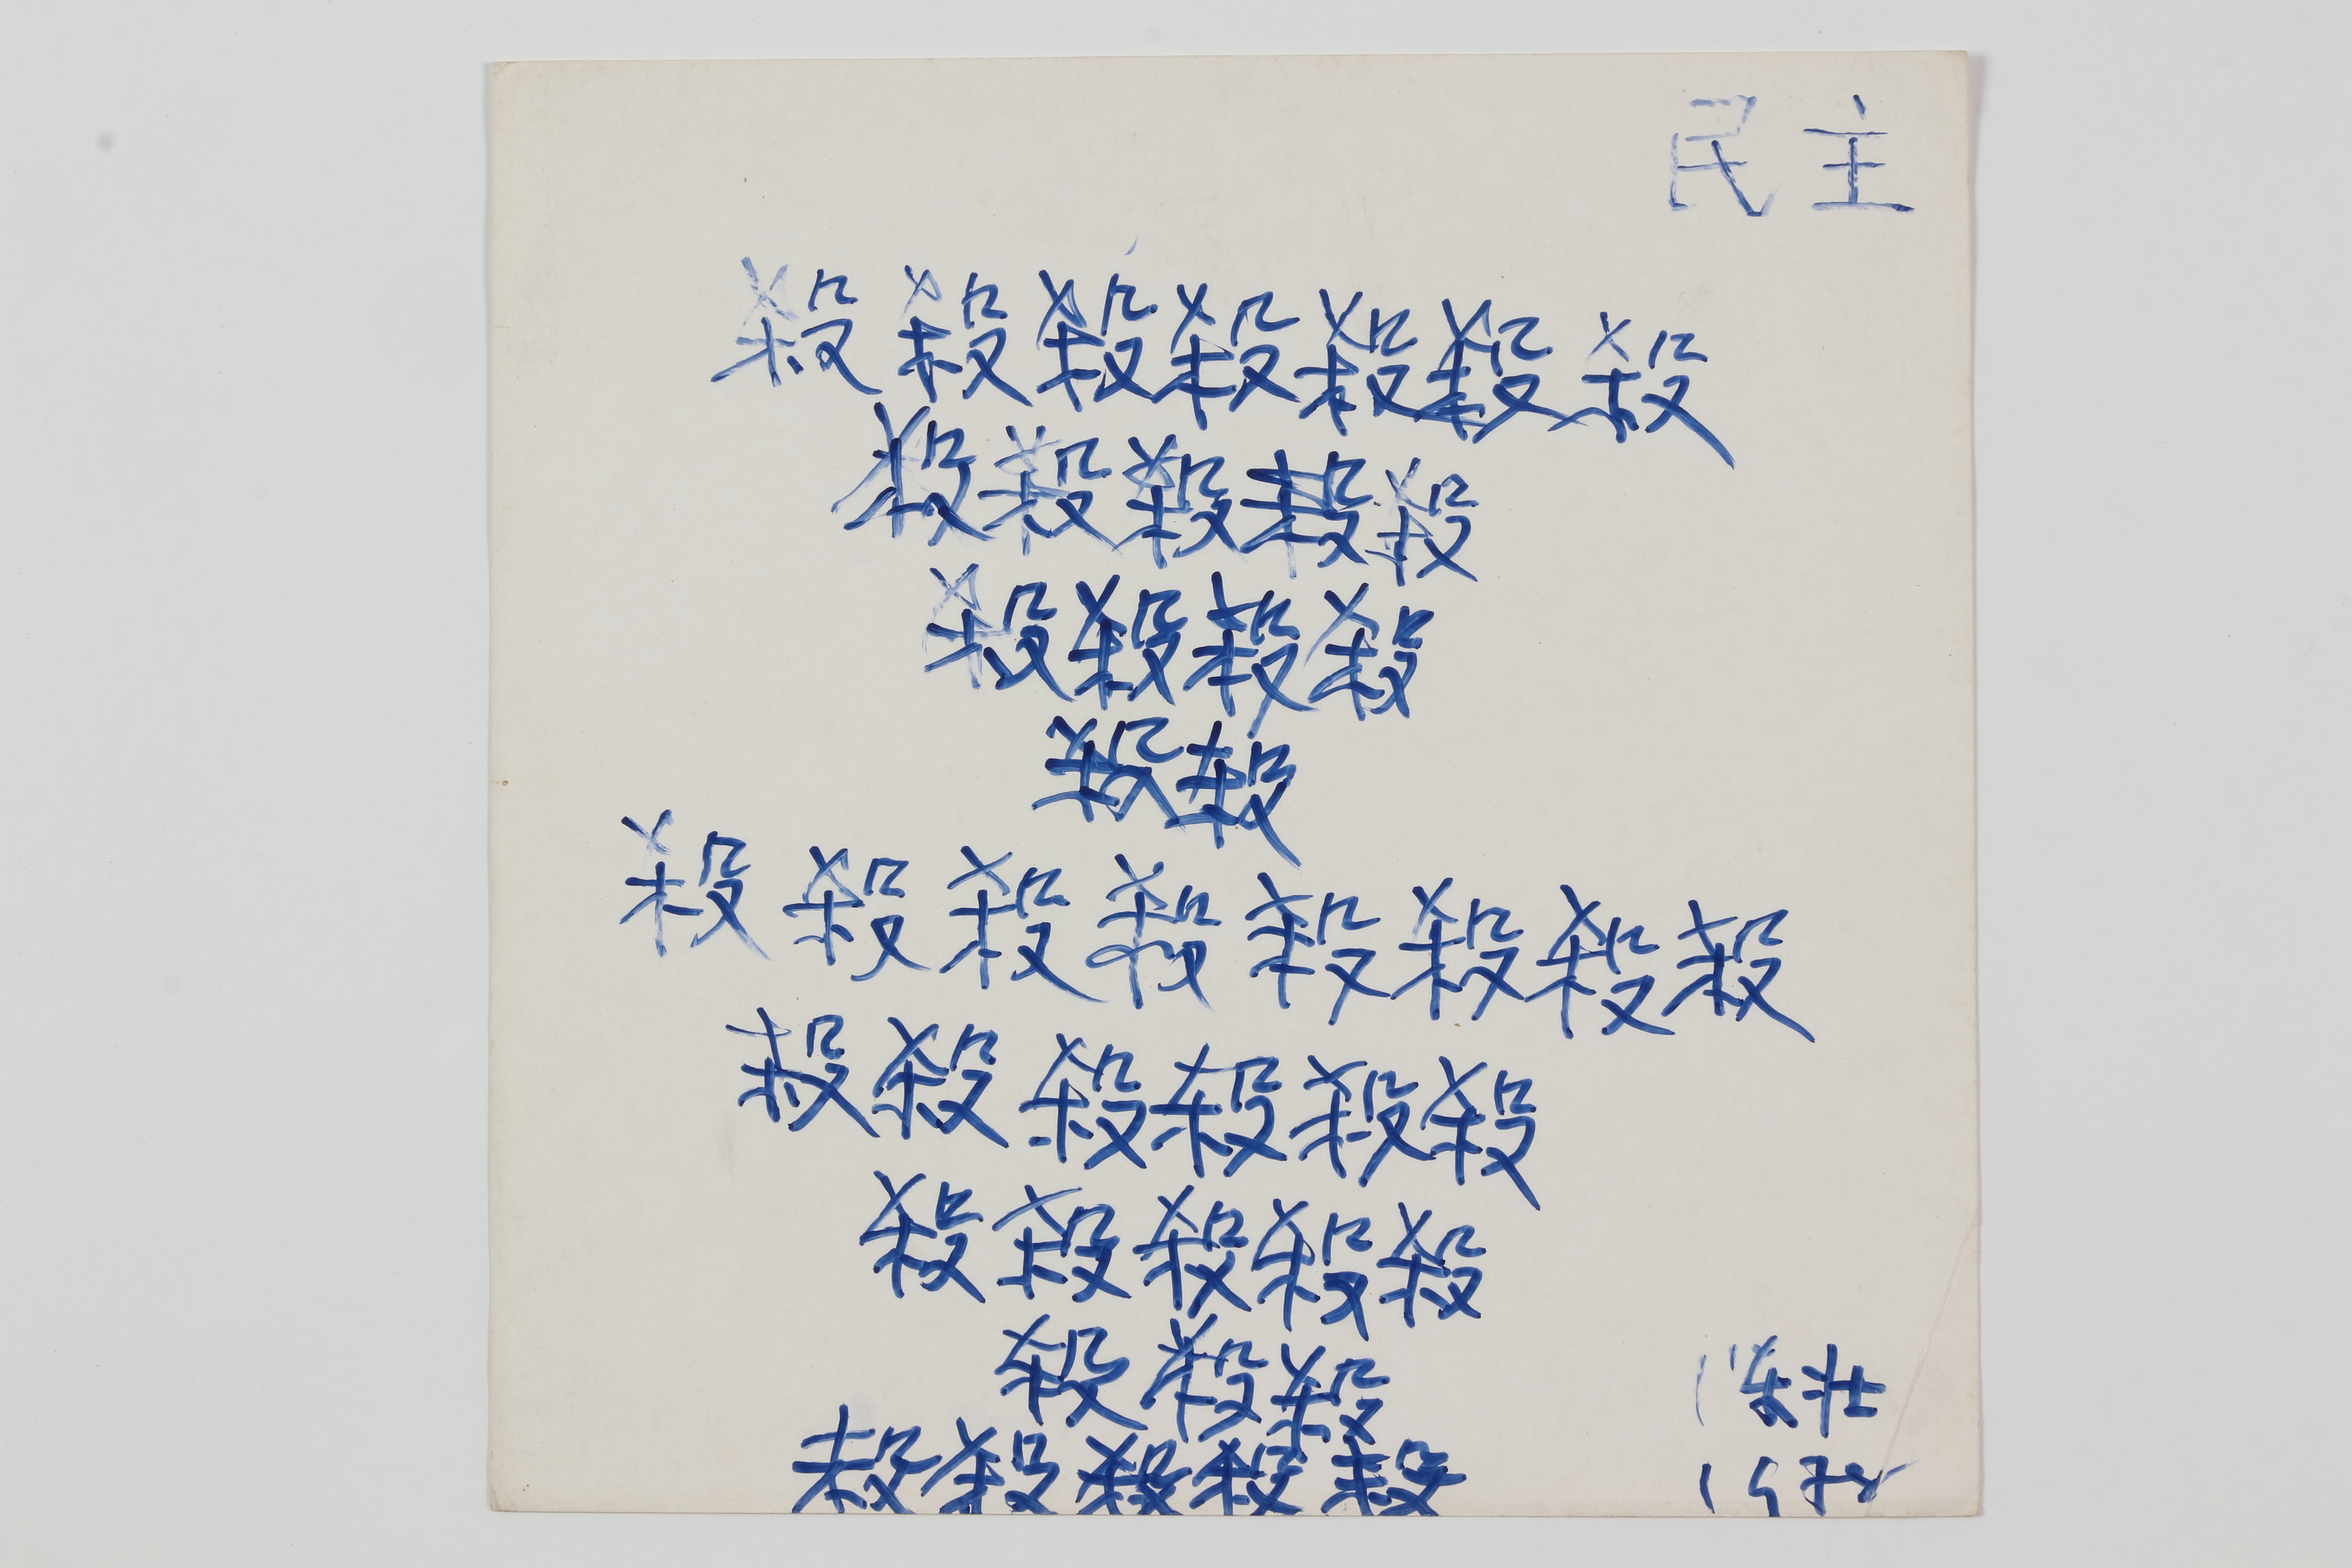 民主
殺殺殺殺殺殺殺
殺殺殺殺殺
殺殺殺殺
殺殺
殺殺殺殺殺殺殺殺
殺殺殺殺殺殺
殺殺殺殺殺
殺殺殺
殺殺殺殺殺
1978